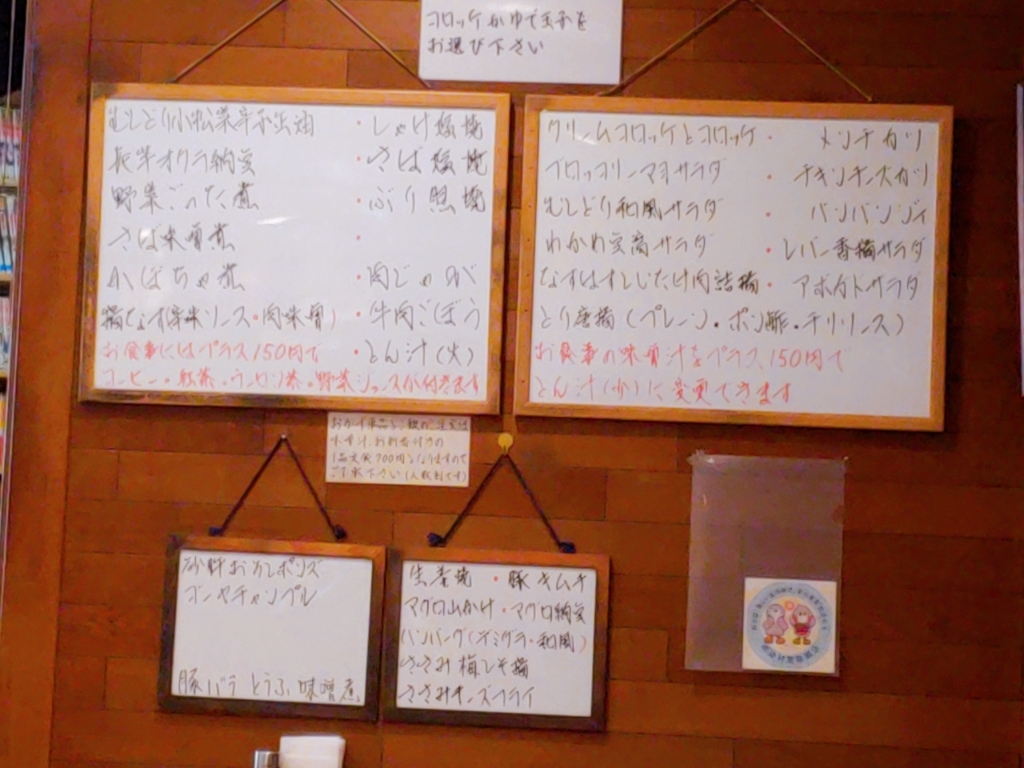 コロッケかゆで玉子を
お選び下さい
むしどり小松菜辛子醤油 ・しゃけ塩焼
長芋オクラ納豆 ・さば塩焼
野菜ごった煮 ・ぶり照焼
さば味噌煮 ・
かぼちゃ煮 ・肉じゃが
揚なす(辛味ソース・肉味噌) ・牛肉ごぼう
お食事にはプラス150円で ・とん汁(大)
コーヒー・紅茶・ウーロン茶・野菜ジュースが付きます
クリームコロッケとコロッケ・ メンチカツ
ブロッコリーマヨサラダ ・ チキンチーズカツ
むしどり和風サラダ ・ バンバンジィ
わかめ豆腐サラダ ・レバー香揚サラダ
なすはすしいたけ肉詰揚・アボカドサラダ
とり唐揚(プレーン・ポン酢・チリソース)
お食事の味噌汁をプラス150円で
とん汁(小)に変更できます
味噌汁、お新香付きの
1品定食700円となりますので
ご了承下さい
砂肝おろしポンズ
ゴーヤチャンプル
豚バラ とうふ 味噌煮
生姜焼 ・豚キムチ
マグロ山かけ・マグロ納豆
ハンバーグ(デミグラ・和風)
ささみ梅しそ揚
ささみチーズフライ